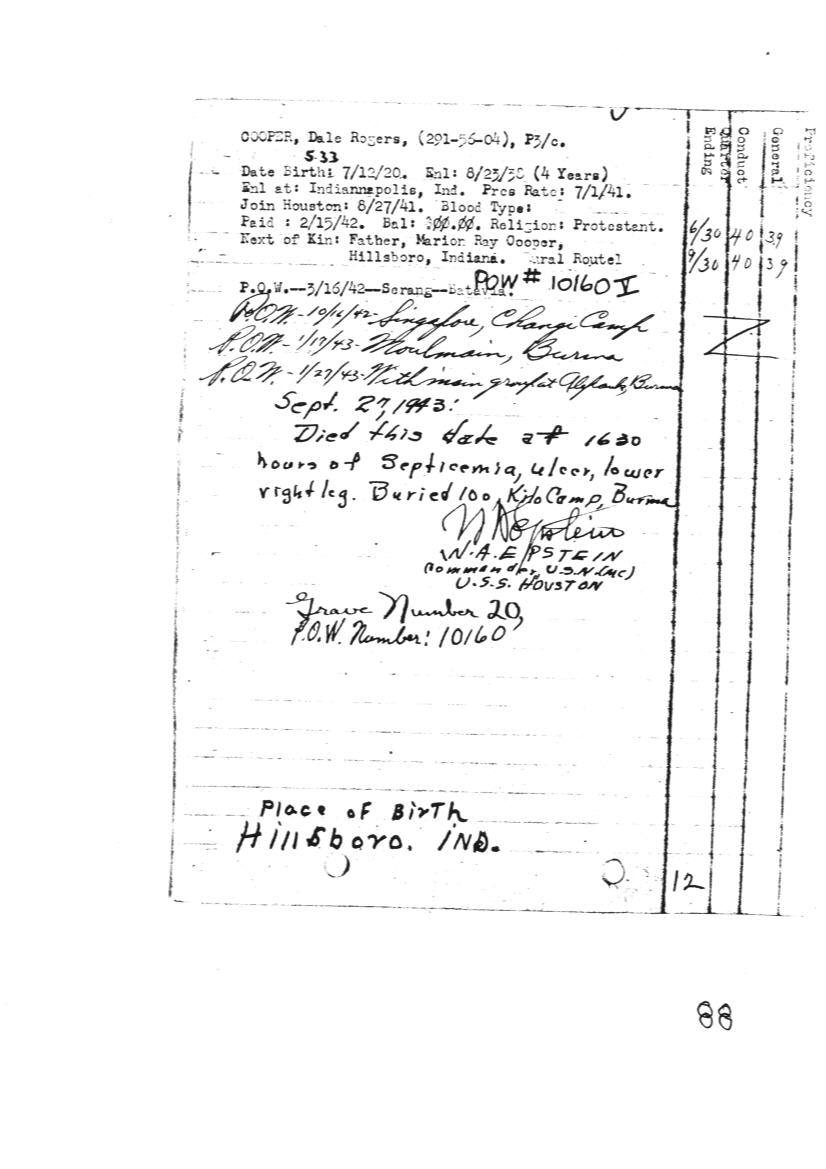 COOPER, Dale Rogers, (291-56-04), P3/c.
S-33
Date Birth: 7/12/20. Enl: 8/23/38 (4 Years)
Enl at: Indiannapolis, Ind. Pres Rate: 7/1/41.
Join Houston: 8/27/41. Blood Type:
Paid : 2/15/42. Bal: $00.00. Religion: Protestant.
Next of Kin: Father, Marion Ray Cooper,
Hillsboro, Indiana. Rural Route1
P.O.W.--3/16/42--Serang--Batavia.
POW # 10160 V
P.O.W.-10/16/42-Singapore, Changi Camp
P.O.W.-1/17/43-Moulmain, Burma
P.O.W.-1/27/43-With main group at Burma
Sept. 27, 1943:
Died this date at 1630
hours of Septicemia, ulcer, lower
right leg. Buried 100 Kilo Camp, Burma
W A Epstein
W.A. EPSTEIN
Commander, U.S.N.(MC)
U.S.S. HOUSTON
Grave Number 20,
P.O.W. Number: 10160
Place of Birth
Hillsboro. IND.
Quarter Ending
Conduct
General
Proficiency
6/30 40 39
9/30 40 39
12
88